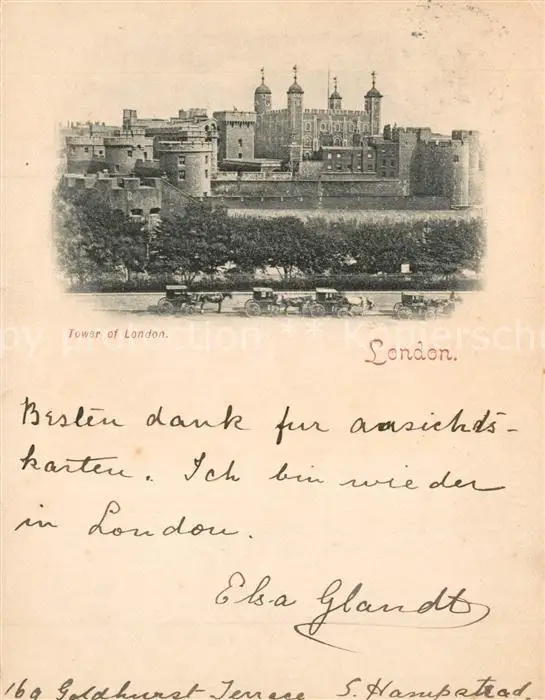 Tower of London.
London.
Besten dank fur ansichts-
karten. Ich bin wieder
in London.
Elsa Glandt
169 Goldhurst Terrace S. Hampstead.